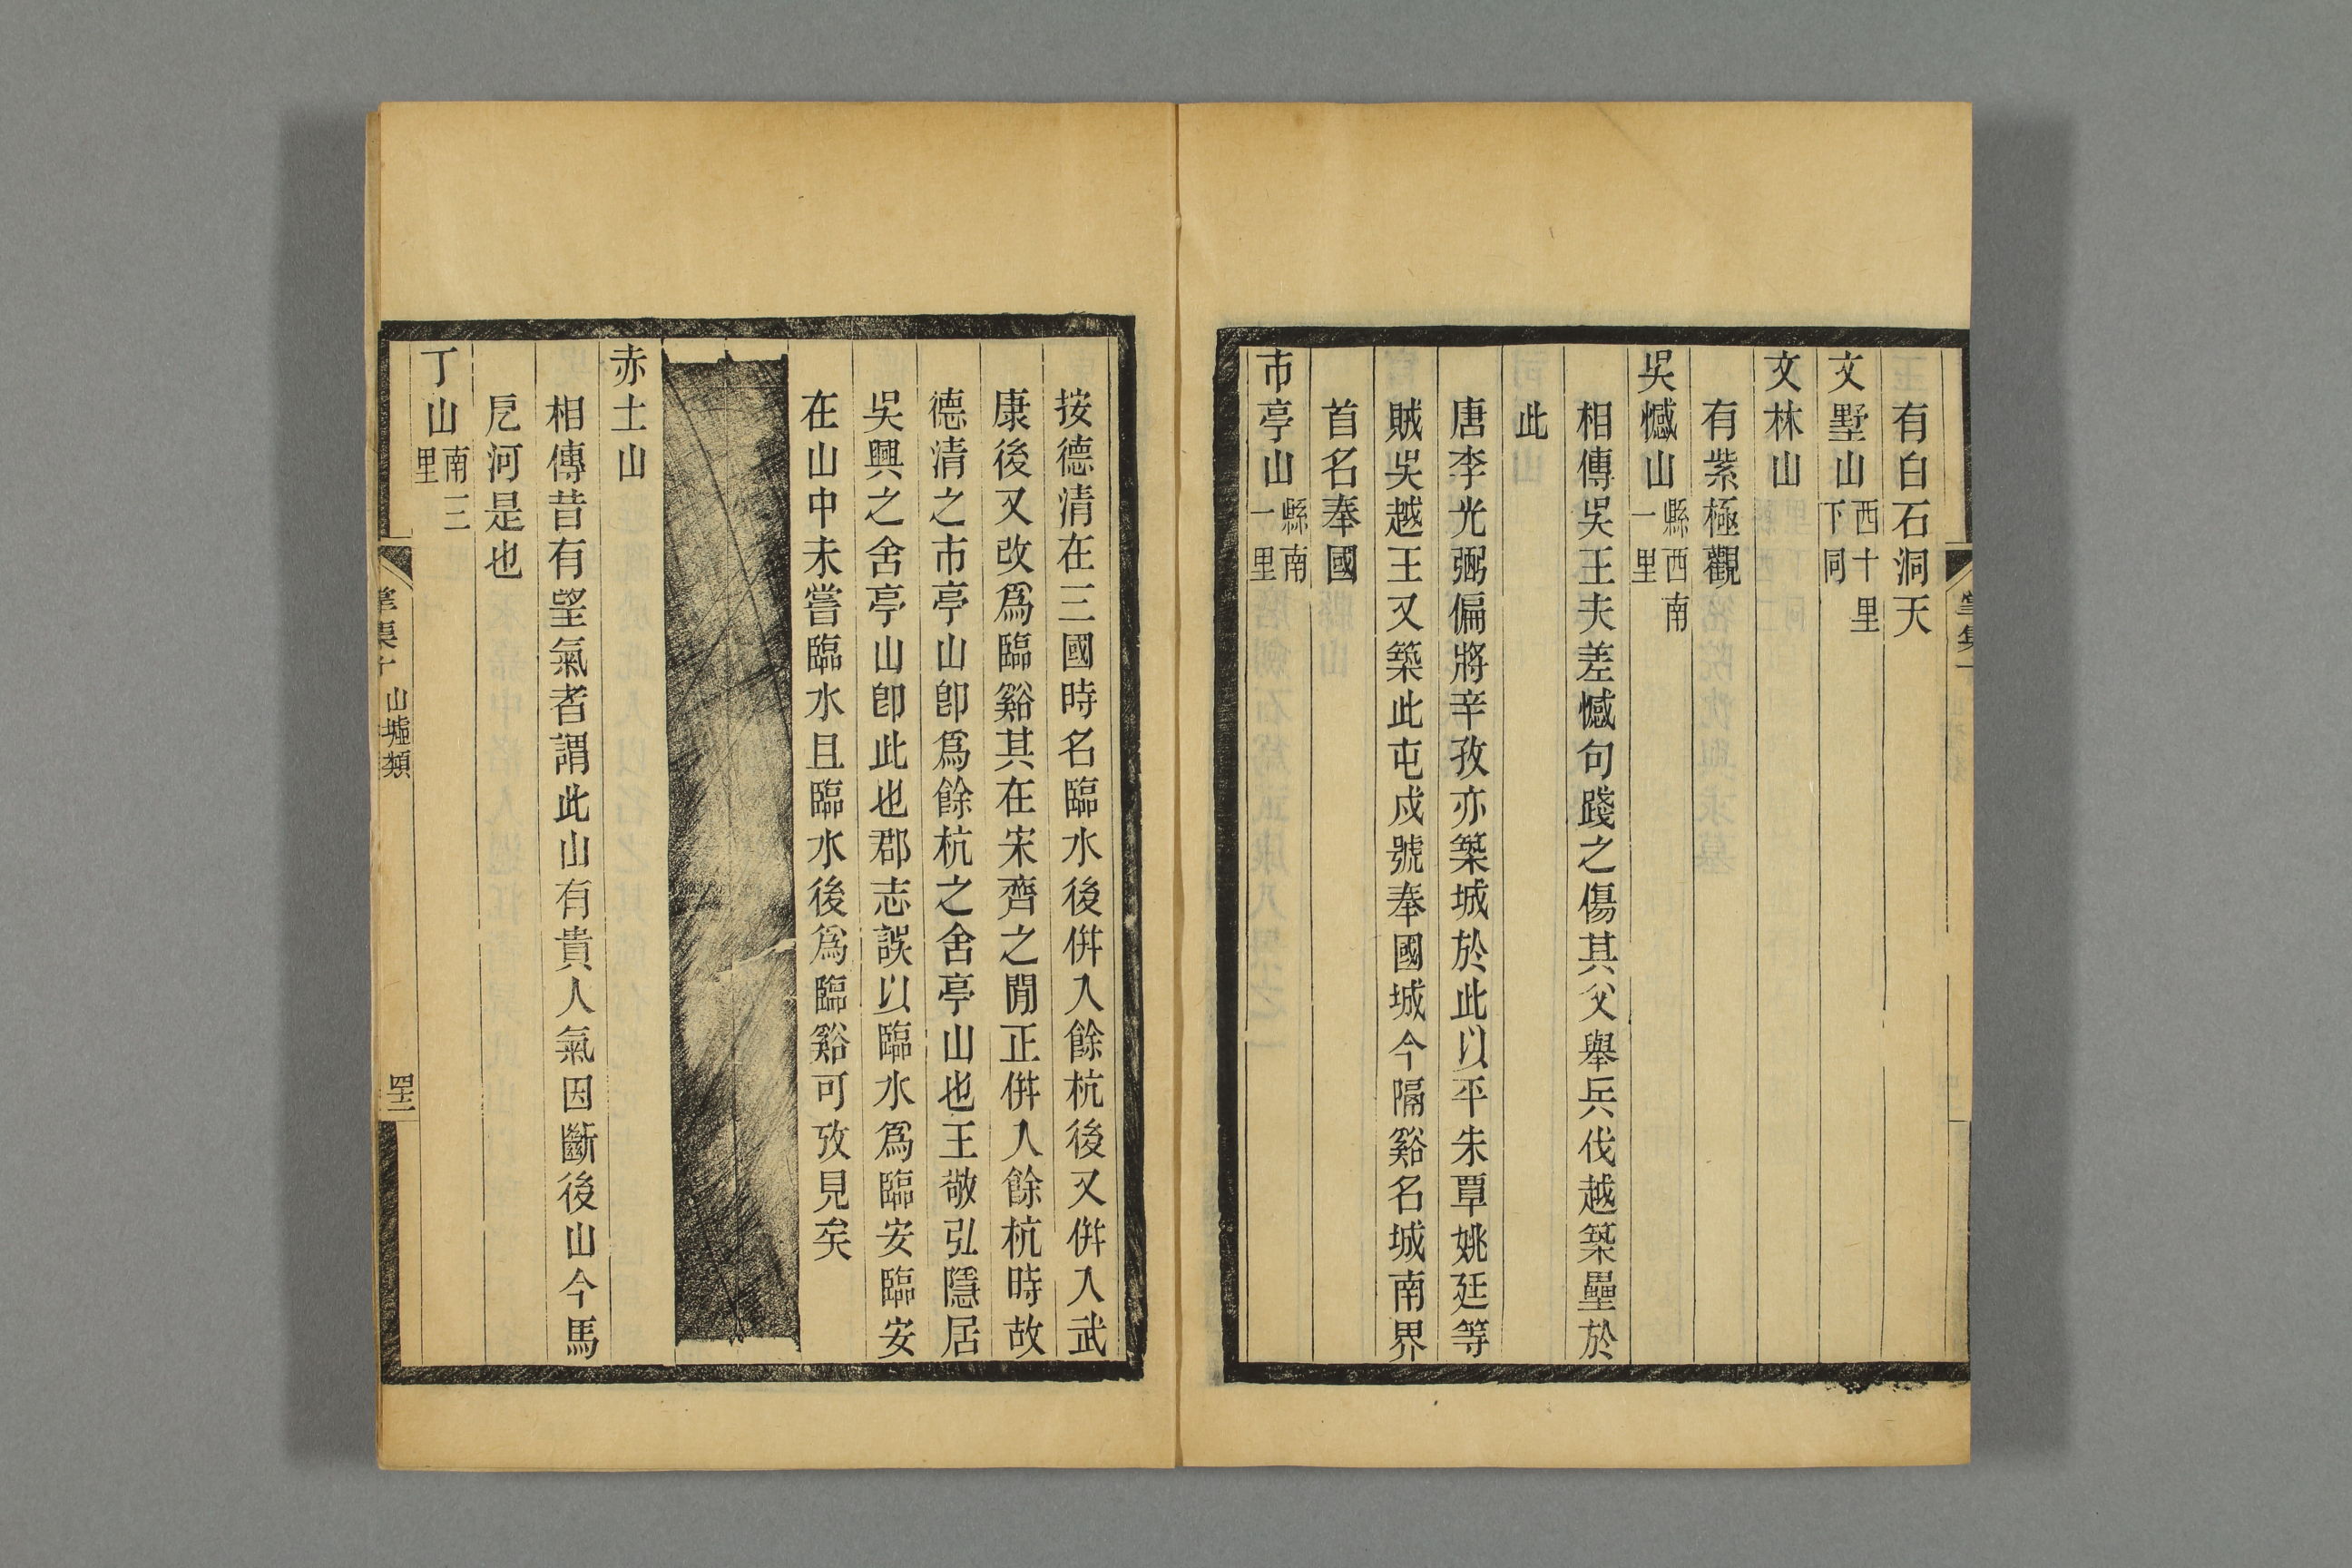 有白石洞天
文墅山西十里下同
文林山
有紫極觀
吳憾山縣西南一里
相傳吳王夫差憾句踐之傷其父舉兵伐越築壘於
此
唐李光弼偏將辛孜亦築城於此以平朱覃姚廷等
賊吳越王又築此屯戍號奉國城今隔谿名城南界
首名奉國
市亭山縣南一里
按德清在三國時名臨水後併入餘杭後又併入武
康後又改爲臨谿其在宋齊之閒正併入餘杭時故
德清之市亭山卽爲餘杭之舍亭山也王敬弘隱居
吳興之舍亭山卽此也郡志誤以臨水爲臨安臨安
在山中未嘗臨水且臨水後爲臨谿可攷見矣
赤土山
相傳昔有望氣者謂此山有貴人氣因斷後山今馬
厄河是也
丁山南三里
山墟類